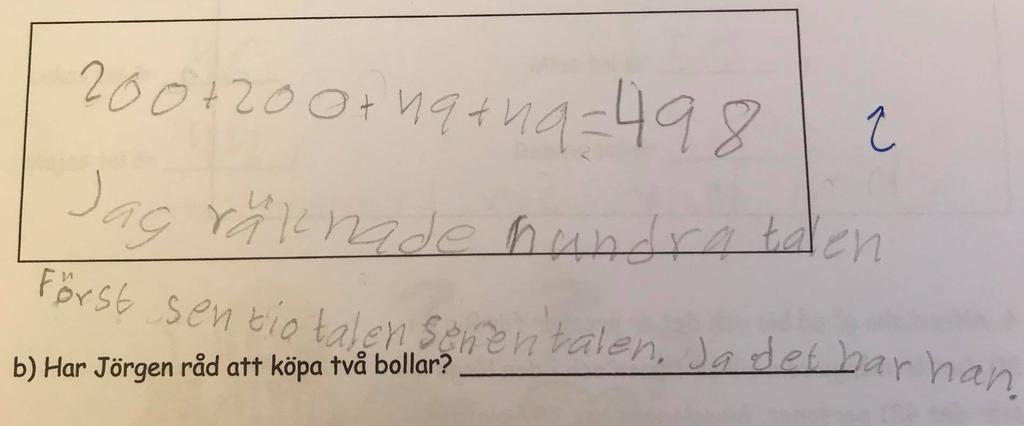 200+200+49+49=498
Jag räknade hundra talen
Först sen tio talen sen en talen.
b) Har Jörgen råd att köpa två bollar? Ja det har han.